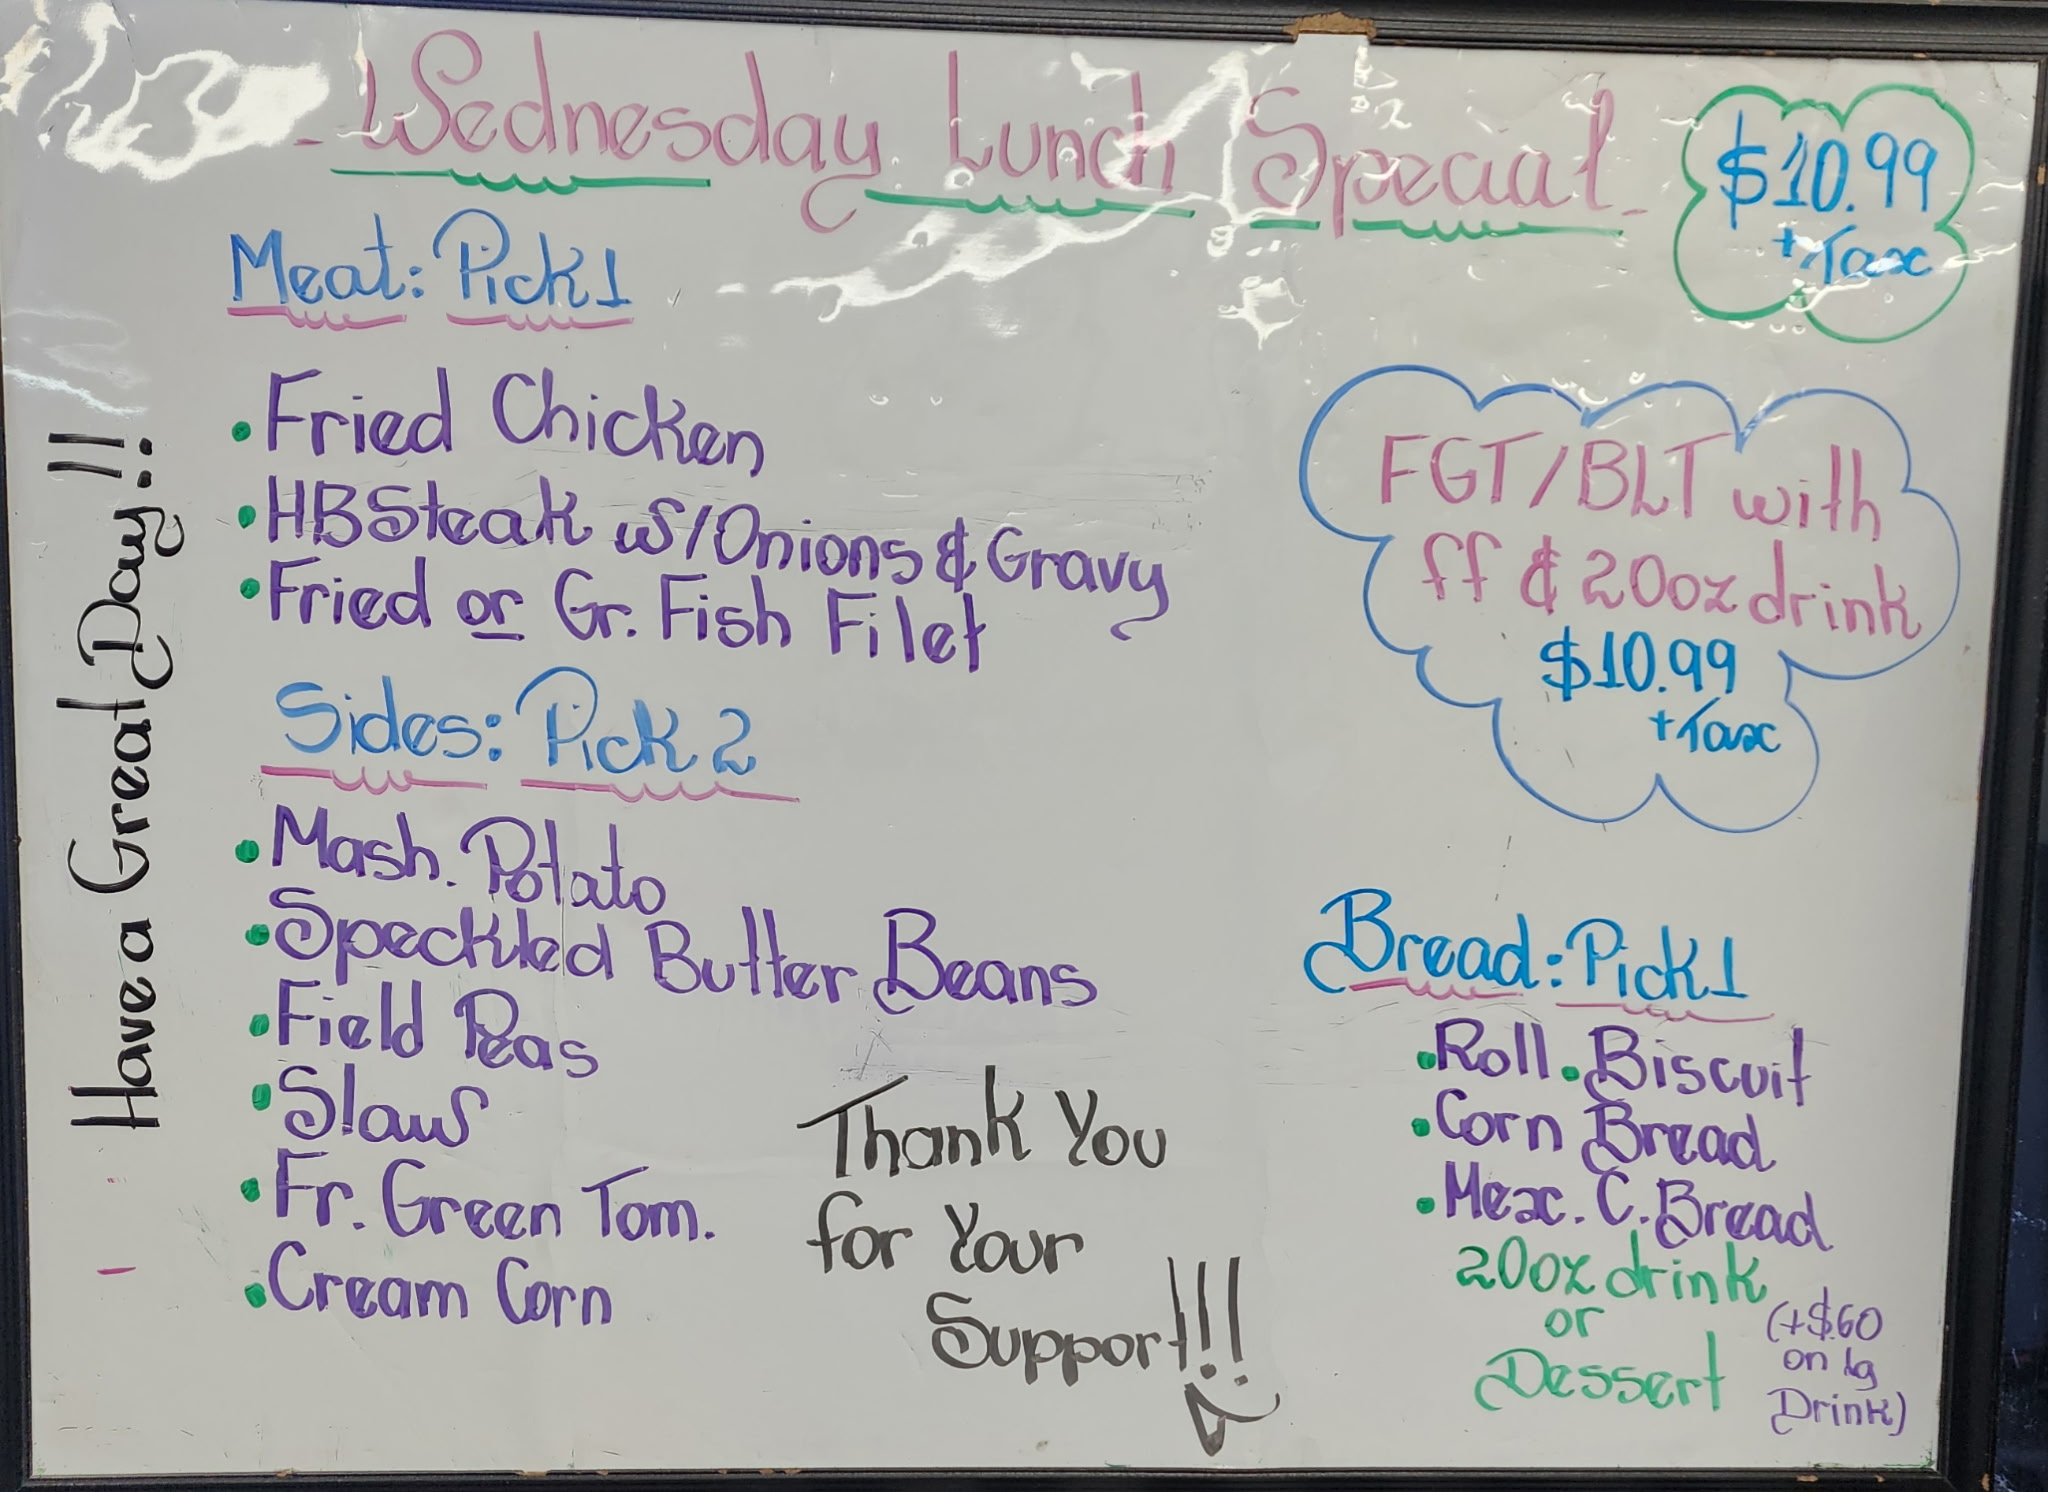 - Wednesday Lunch Special -
$10.99
+ Tax
Meat: Pick 1
• Fried Chicken
• HBSteak w/Onions & Gravy
• Fried or Gr. Fish Filet
Sides: Pick 2
• Mash. Potato
• Speckled Butter Beans
• Field Peas
• Slaw
• Fr. Green Tom.
• Cream Corn
FGT/BLT with
ff & 20oz drink
$10.99
+Tax
Bread: Pick 1
• Roll • Biscuit
• Corn Bread
• Mex. C. Bread
20oz drink
or
Dessert
(+$.60
on lg
Drink)
Thank You
for Your
Support!!!
Have a Great Day!!